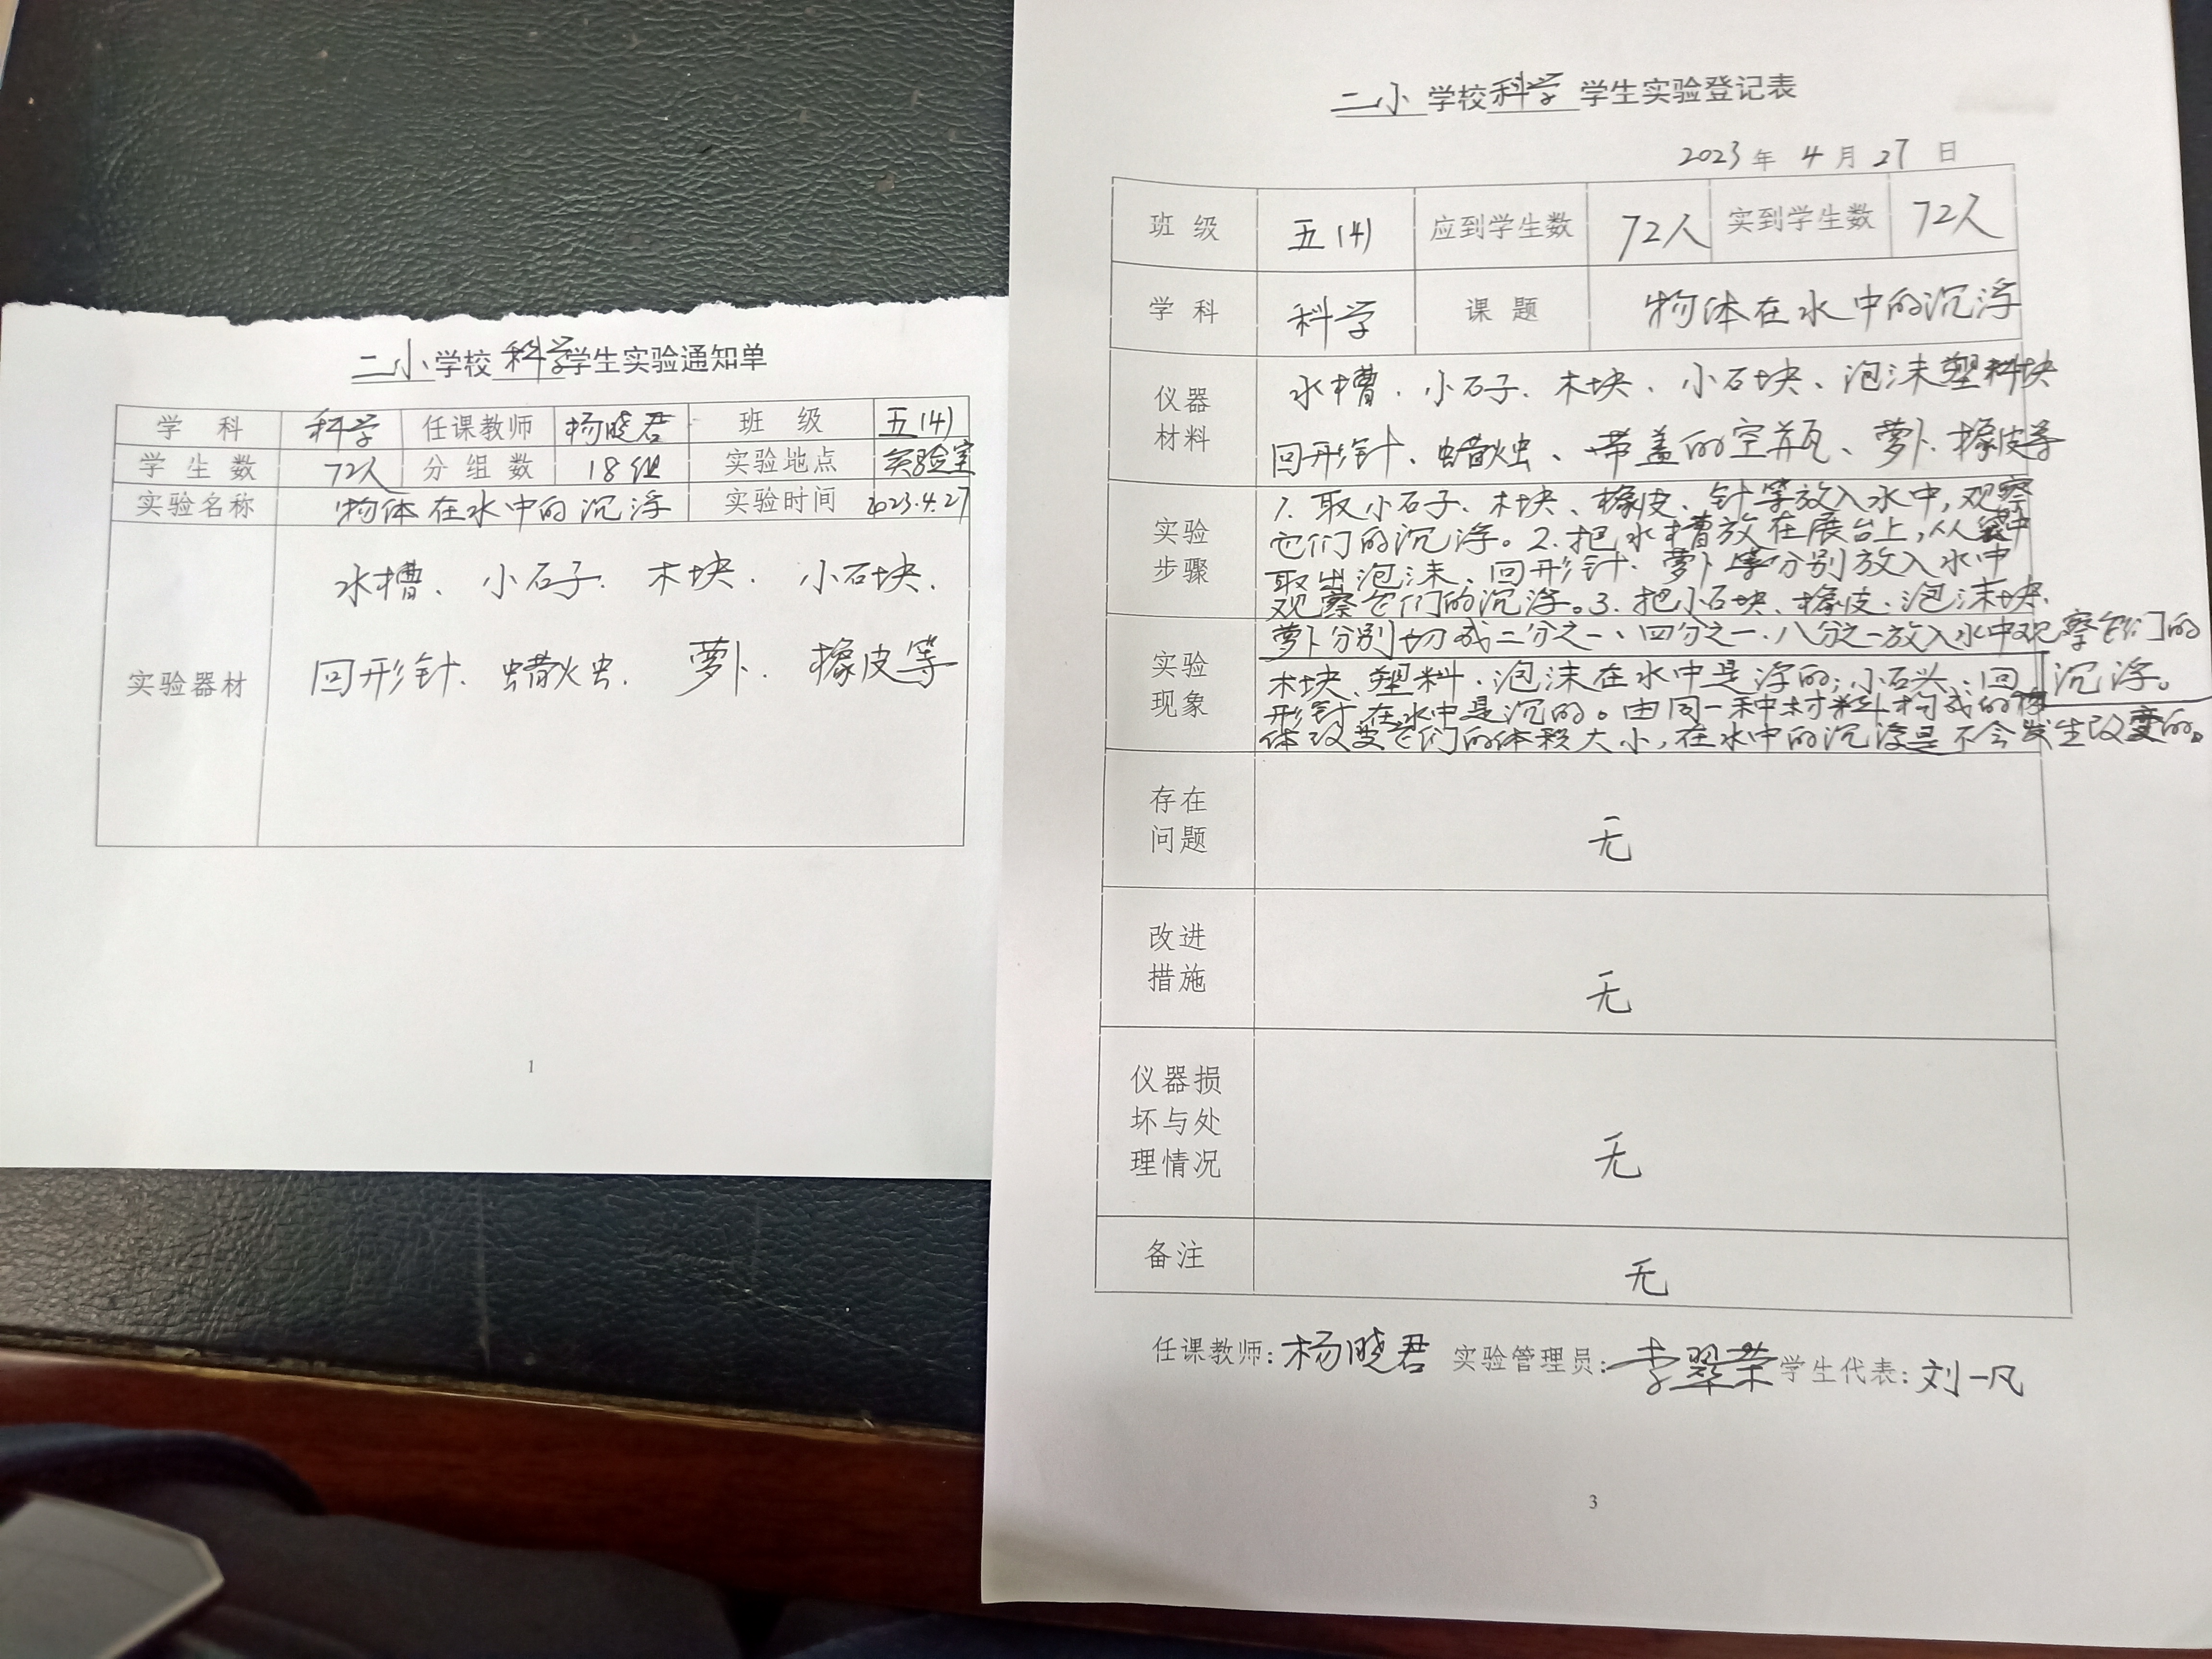 二小学校科学学生实验通知单
学 科 科学 任课教师 杨晓君 班 级 五(4)
学 生 数 72人 分 组 数 18组 实验地点 实验室
实验名称 物体在水中的沉浮 实验时间 2023.4.27
水槽、小石子、木块、小石块、
实验器材
回形针、蜡烛、萝卜、橡皮等
1
二小学校科学学生实验登记表
2023年 4月 27日
班 级 五(4) 应到学生数 72人 实到学生数 72人
学 科 科学 课 题 物体在水中的沉浮
仪器
材料
水槽、小石子、木块、小石块、泡沫塑料块
回形针、蜡烛、带盖的空瓶、萝卜、橡皮等
实验
步骤
1. 取小石子、木块、橡皮、针等放入水中,观察
它们的沉浮。2.把水槽放在展台上,从袋中
取出泡沫、回形针、萝卜等分别放入水中
观察它们的沉浮。3.把小石块、橡皮、泡沫块、
萝卜分别切成二分之一、四分之一、八分之一放入水中观察它们的
沉浮。
实验
现象
木块、塑料、泡沫在水中是浮的;小石头、回
形针在水中是沉的。由同一种材料构成的物
体改变它们的体积大小,在水中的沉浮是不会发生改变的。
存在
问题
无
改进
措施
无
仪器损
坏与处
理情况
无
备注
无
任课教师:杨晓君 实验管理员:李翠荣 学生代表:刘一凡
3